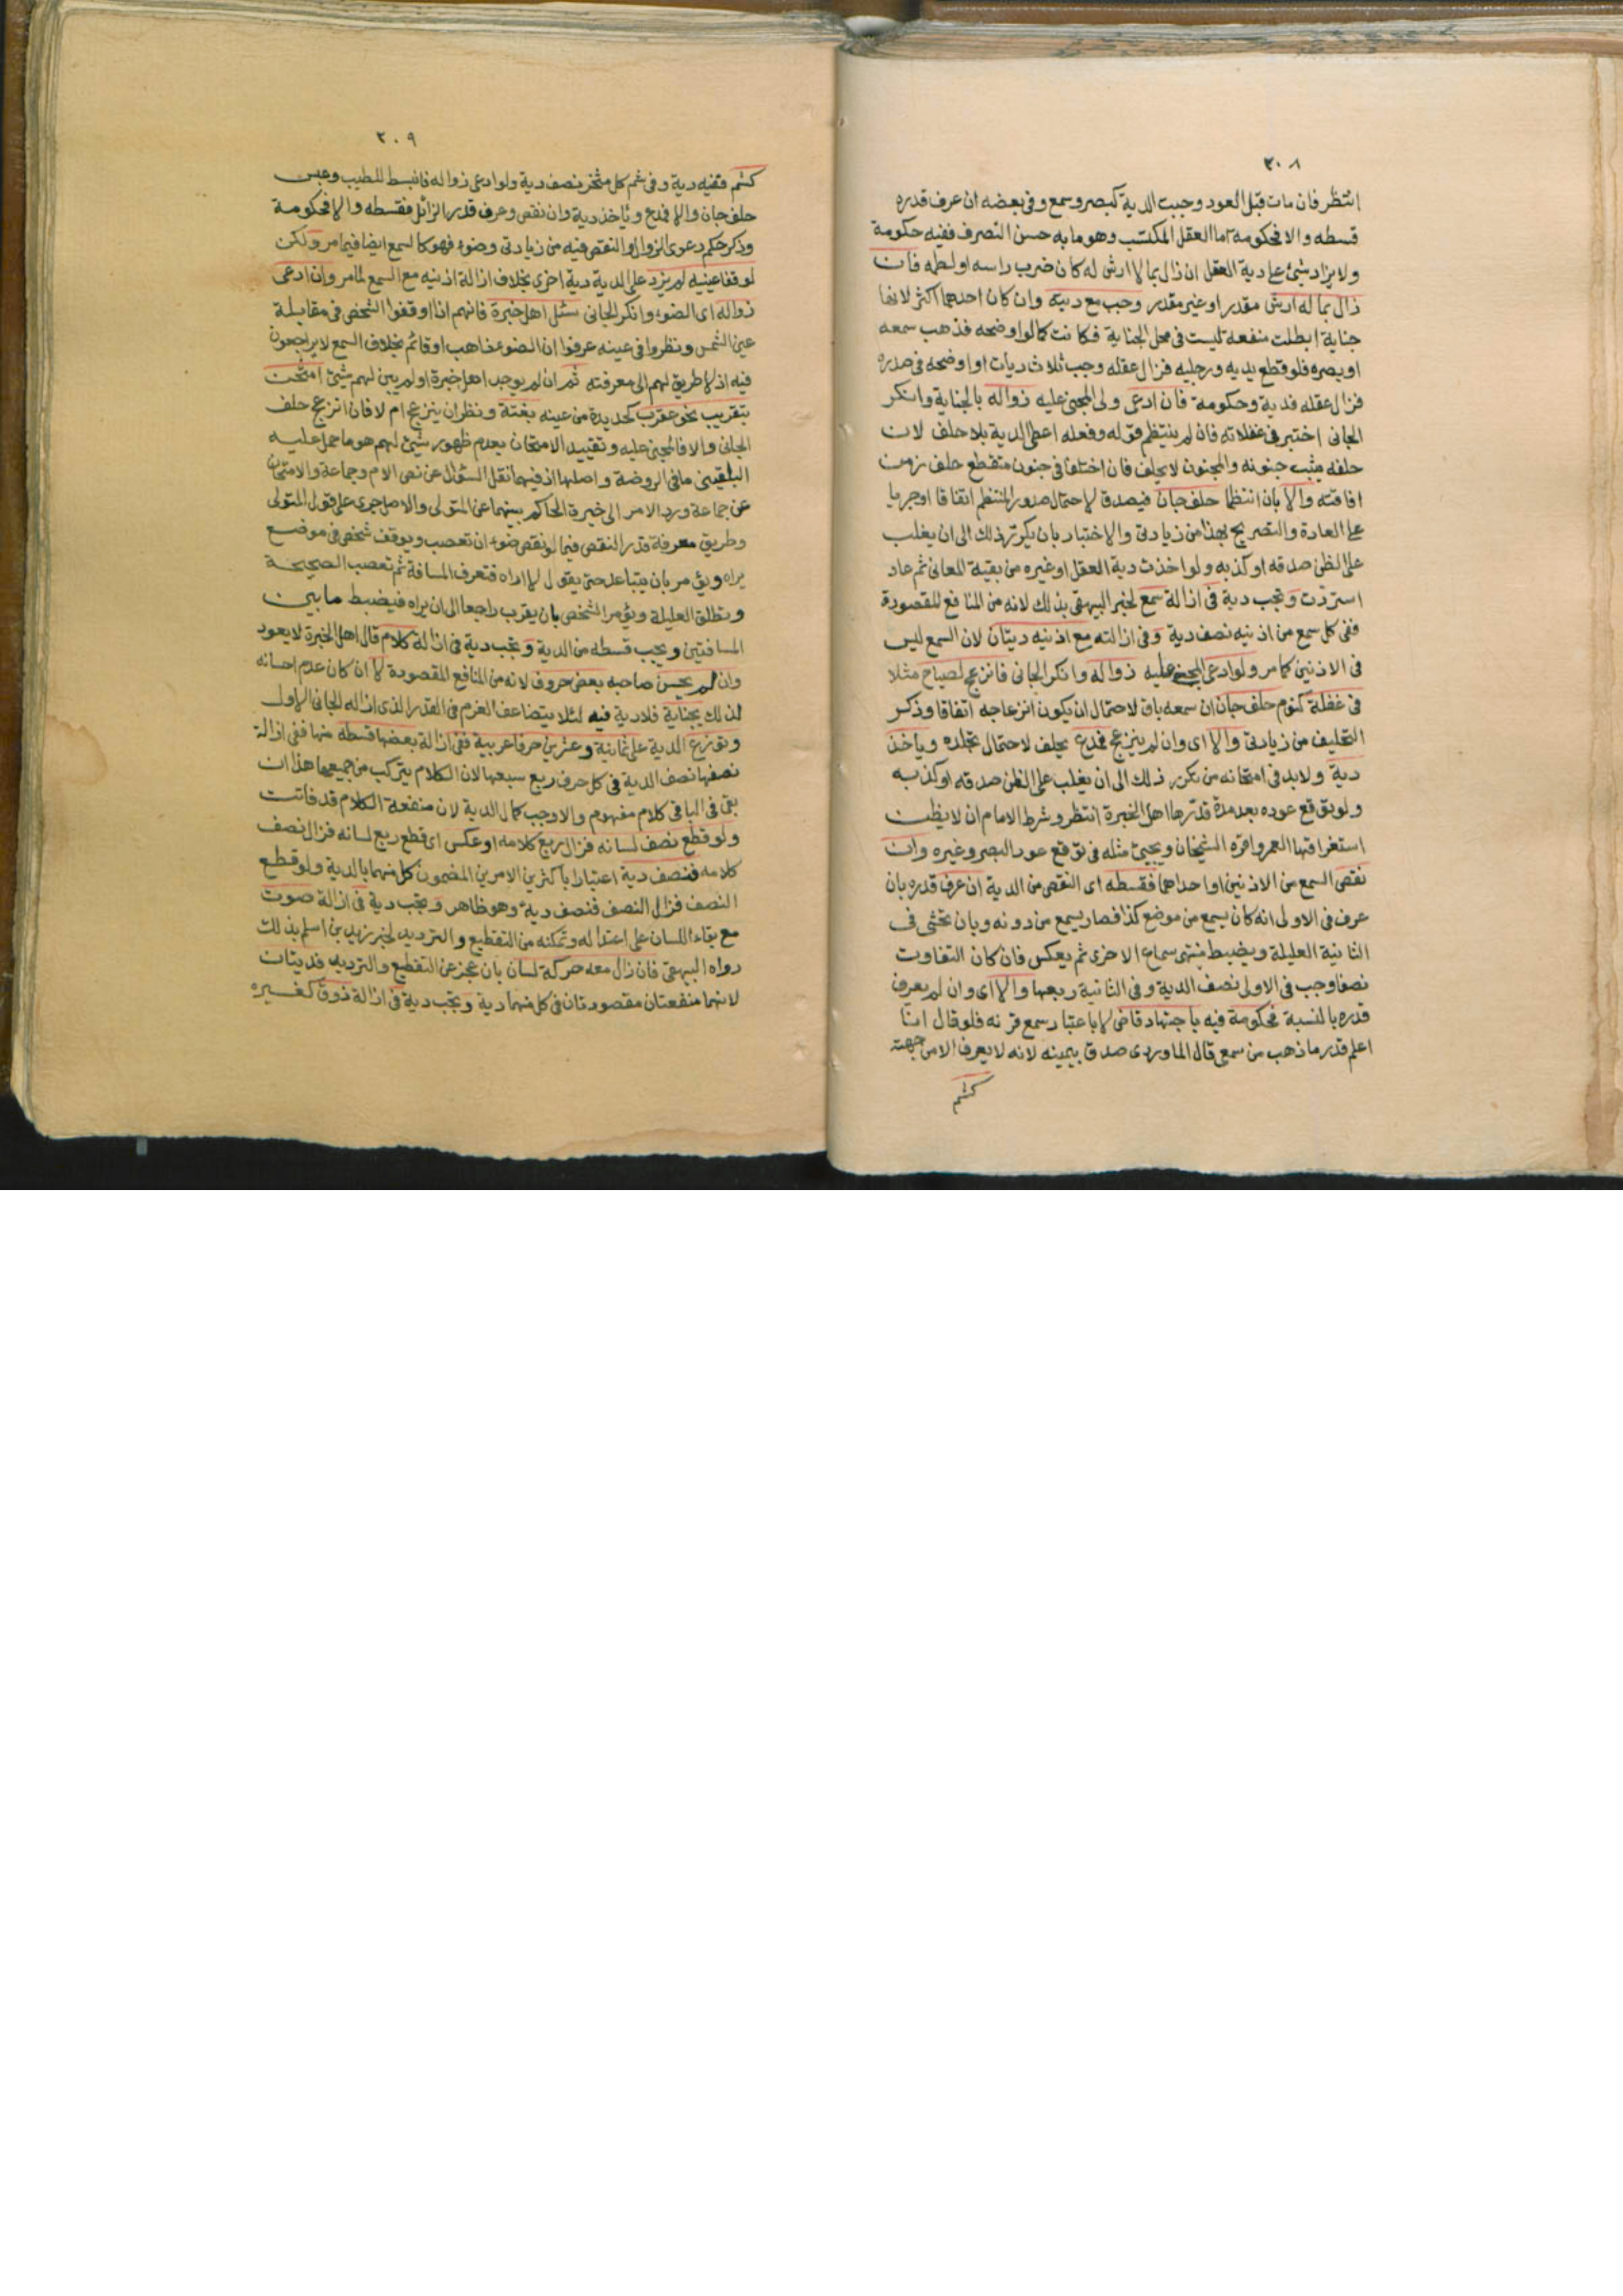 ٣٠٨
انتظر فان مات قبل العود وجبت الدية كبصر وسمع وفى بعضه ان عرف قدره
قسطه والا فحكومة اما العقل المكتسب وهو ما به حسن التصرف ففيه حكومة
ولا يزاد شئ على دية العقل ان زال بما لا ارش له كان ضرب راسه او لطمه فان
زال بما له ارش مقدر او غير مقدر وجب مع ديته وان كان احدهما اكثر لانها
جناية ابطلت منفعة ليست فى محل الجناية فكانت كما لو اوضحه فذهب سمعه
او بصره فلو قطع يديه ورجليه فزال عقله وجب ثلاث ديات او اوضحه فى صدره
فزال عقله فدية وحكومة فان ادعى ولى المجنى عليه زواله بالجناية وانكر
الجانى اختبر فى غفلاته فان لم ينتظم قوله وفعله اعطى الدية بلا حلف لان
حلفه يثبت جنونه والمجنون لا يحلف فان اختلفا فى جنون متقطع حلف زمن
افاقته والا بان انتظما حلف جان فيصدق لاحتمال صدور المنتظم اتفاقا او جريا
على العادة والتصريح بهذا من زيادتى والاختبار بان يكرر ذلك الى ان يغلب
على الظن صدقه او كذبه ولو اخذت دية العقل او غيره من بقية المعانى ثم عاد
استردت وتجب دية فى ازالة سمع لخبر البيهقى بذلك لانه من المنافع المقصودة
ففى كل سمع من اذنيه نصف دية وفى ازالته مع اذنيه ديتان لان السمع ليس
فى الاذنين كما مر ولو ادعى المجنى عليه زواله وانكر الجانى فانزعج لصياح مثلا
فى غفلة كنوم حلف جان ان سمعه باق لاحتمال ان يكون انزعاجه اتفاقا وذكر
التحليف من زيادتى والا اى وان لم ينزعج فمدع يحلف لاحتمال تجلده وياخذ
دية ولابد فى امتحانه من تكرر ذلك الى ان يغلب على الظن صدقه او كذبه
ولو توقع عوده بعد مدة قدرها اهل الخبرة انتظر وشرط الامام ان لا يظن
استغراقها العمر واقره الشيخان ويجيئ مثله فى توقع عود البصر وغيره وان
نقص السمع من الاذنين او احداهما فقسطه اى النقص من الدية ان عرف قدره بان
عرف فى الاولى انه كان يسمع من موضع كذا فصار يسمع من دونه وبان تحشى فى
الثانية العليلة ويضبط منتهى سماع الاخرى ثم يعكس فان كان التفاوت
نصفا وجب فى الاولى نصف الدية وفى الثانية ربعها والا اى وان لم يعرف
قدره بالنسبة فحكومة فيه باجتهاد قاض لا باعتبار سمع قرنه فلو قال انا
اعلم قدر ما ذهب من سمعى قال الماوردى صدق بيمينه لانه لا يعرف الا من جهته
كشم
٢٠٩
كشم ففيه دية وفى شم كل منخر نصف دية ولو ادعى زواله فانبسط للطيب وعبس
حلف جان والا فمدع وياخذ دية وان نقص وعرف قدر الزائل فقسطه والا فحكومة
وذكر حكم دعوى الزوال والنقص فيه من زيادتى وضوء فهو كالسمع ايضا فيما مر ولكن
لو فقا عينيه لم يزد على الدية دية اخرى بخلاف ازالة اذنيه مع السمع لما مر وان ادعى
زواله اى الضوء وانكر الجانى سئل اهل خبرة فانهم اذا اوقفوا الشخص فى مقابلة
عين الشمس ونظروا فى عينه عرفوا ان الضوء ذاهب او قائم بخلاف السمع لا يراجعون
فيه اذ لا طريق لهم الى معرفته ثم ان لم يوجد اهل خبرة او لم يبن لهم شيئ امتحن
بتقريب نحو عقرب كحديدة من عينه بغتة ونظر ان ينزعج ام لا فان انزعج حلف
الجانى والا فالمجنى عليه وتقييد الامتحان بعدم ظهور شيئ لهم هو ما حمل عليه
البلقينى ما فى الروضة واصلها اذ فيهما نقل السؤال عن نص الام وجماعة والامتحان
عن جماعة ورد الامر الى خيرة الحاكم بينهما عن المتولى والاصل جرى على قول المتولى
وطريق معرفة قدر النقص فيما لو نقص ضوء ان تعصب ويوقف شخص فى موضع
يراه ويؤمر بان يتباعد حتى يقول لا اراه فتعرف المسافة ثم تعصب الصحيحة
وتطلق العليلة ويؤمر الشخص بان يقرب راجعا الى ان يراه فيضبط ما بين
المسافتين ويجب قسطه من الدية وتجب دية فى ازالة كلام قال اهل الخبرة لا يعود
وان لم يحسن صاحبه بعض حروف لانه من المنافع المقصودة لا ان كان عدم احسانه
لذلك بجناية فلا دية فيه لئلا يتضاعف الغرم فى القدر الذى ازاله الجانى الاول
وتوزع الدية على ثمانية وعشرين حرفا عربية ففى ازالة بعضها قسطه منها ففى ازالة
نصفها نصف الدية فى كل حرف ربع سبعها لان الكلام يتركب من جميعها هذا ان
بقى فى الباقى كلام مفهوم والا وجب كمال الدية لان منفعة الكلام قد فاتت
ولو قطع نصف لسانه فزال ربع كلامه او عكس اى قطع ربع لسانه فزال نصف
كلامه فنصف دية اعتبارا باكثر الامرين المضمون كل منهما بالدية ولو قطع
النصف فزال النصف فنصف دية وهو ظاهر وتجب دية فى ازالة صوت
مع بقاء اللسان على اعتداله وتمكنه من التقطيع والترديد لخبر زيد بن اسلم بذلك
رواه البيهقى فان زال معه حركة لسان بان عجز عن التقطيع والترديد فديتان
لانهما منفعتان مقصودتان فى كل منهما دية وتجب دية فى ازالة ذوق كغيره